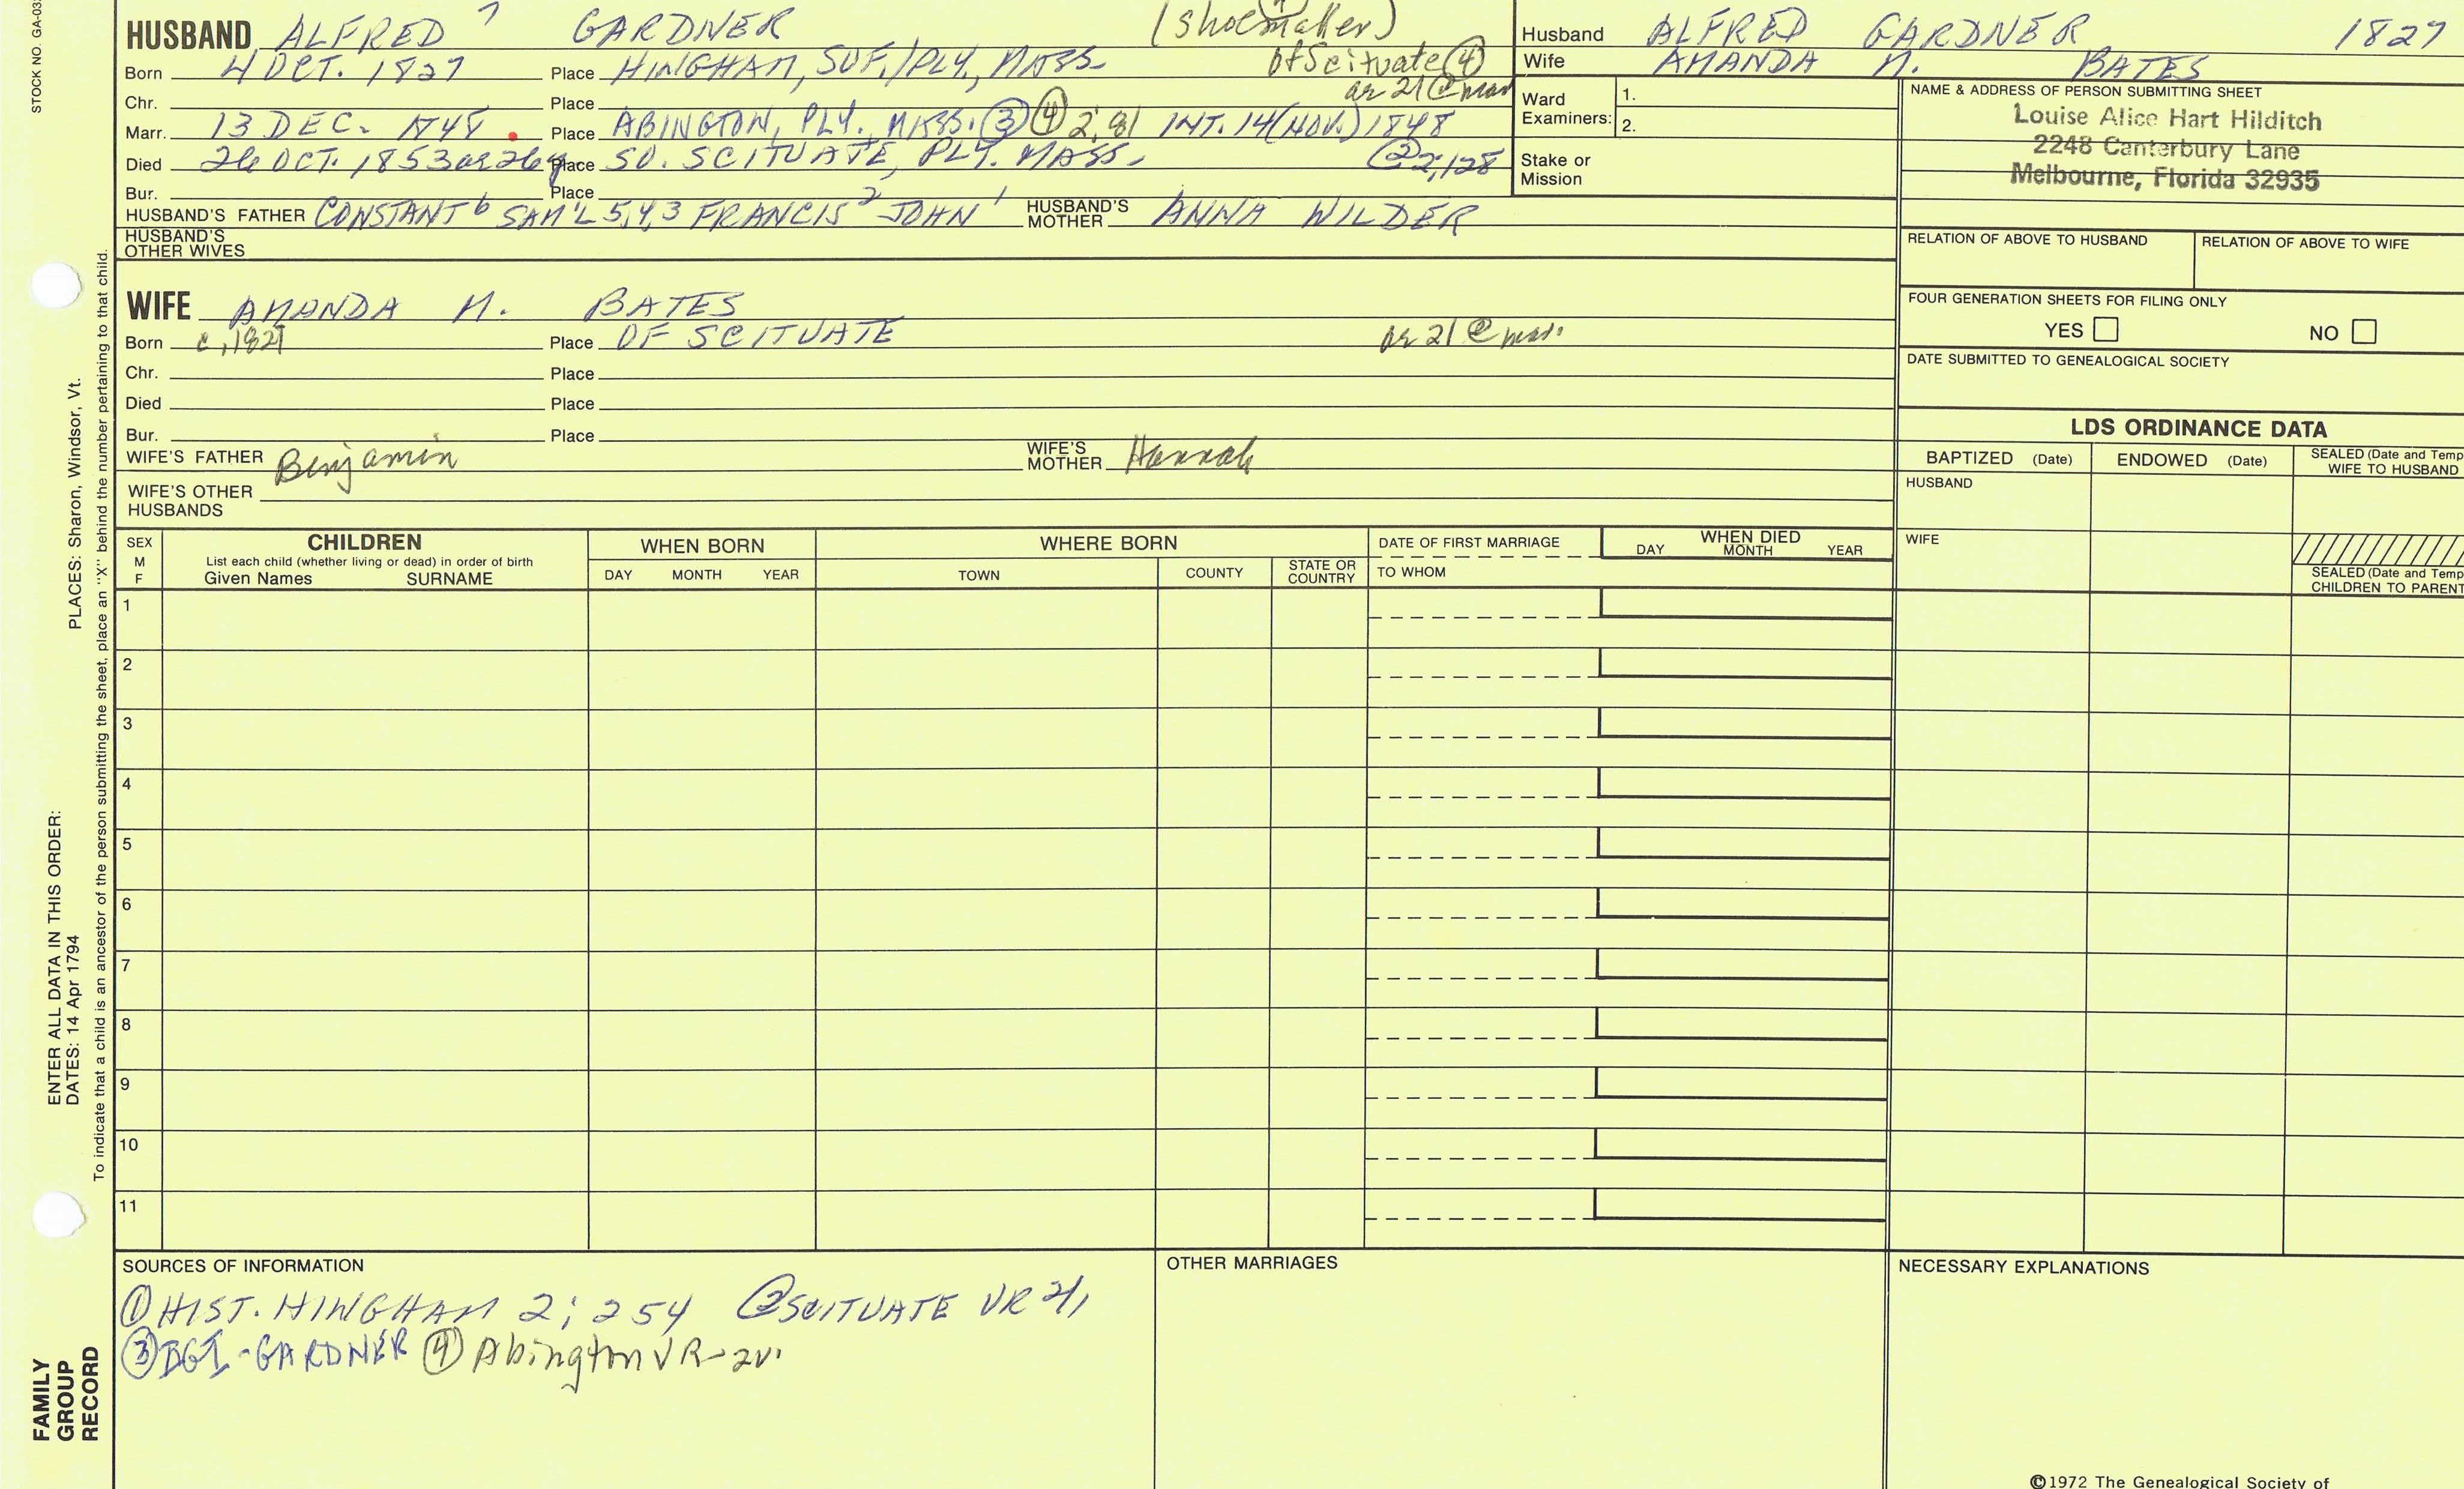 STOCK NO. GA-03
HUSBAND ALFRED 7 GARDNER (Shoemaker)
of Scituate ④
Born 4 OCT. 1827 Place HINGHAM, SUF./PLY., MASS.
Chr. Place ae 21 @ mar
Marr. 13 DEC. 1848 Place ABINGTON, PLY., MASS. ③ ④ 2; 81 INT. 14 (NOV.) 1848
Died 26 OCT. 1853 ae 26y Place SO. SCITUATE, PLY. MASS. ② 2;128
Bur. Place
HUSBAND'S FATHER CONSTANT 6 SAM'L 5,4,3 FRANCIS 2 JOHN 1 HUSBAND'S MOTHER ANNA WILDER
HUSBAND'S OTHER WIVES
WIFE AMANDA M. BATES
Born c. 1827 Place OF SCITUATE ae 21 @ mar.
Chr. Place
Died Place
Bur. Place
WIFE'S FATHER Benjamin WIFE'S MOTHER Hannah
WIFE'S OTHER HUSBANDS
Husband ALFRED GARDNER 1827
Wife AMANDA M. BATES
Ward Examiners: 1.
2.
Stake or Mission
NAME & ADDRESS OF PERSON SUBMITTING SHEET
Louise Alice Hart Hilditch
2248 Canterbury Lane
Melbourne, Florida 32935
RELATION OF ABOVE TO HUSBAND RELATION OF ABOVE TO WIFE
FOUR GENERATION SHEETS FOR FILING ONLY
YES NO
DATE SUBMITTED TO GENEALOGICAL SOCIETY
LDS ORDINANCE DATA
BAPTIZED (Date) ENDOWED (Date) SEALED (Date and Temp
WIFE TO HUSBAND
HUSBAND
WIFE
SEALED (Date and Temp
CHILDREN TO PARENT
SEX
M
F
CHILDREN
List each child (whether living or dead) in order of birth
Given Names SURNAME
WHEN BORN
DAY MONTH YEAR
WHERE BORN
TOWN COUNTY STATE OR COUNTRY
DATE OF FIRST MARRIAGE
TO WHOM
WHEN DIED
DAY MONTH YEAR
1
2
3
4
5
6
7
8
9
10
11
SOURCES OF INFORMATION
① HIST. HINGHAM 2; 254 ② SCITUATE VR
③ IGI - GARDNER ④ Abington VR - 2v.
OTHER MARRIAGES
NECESSARY EXPLANATIONS
©1972 The Genealogical Society of
PLACES: Sharon, Windsor, Vt.
To indicate that a child is an ancestor of the person submitting the sheet, place an "X" behind the number pertaining to that child.
ENTER ALL DATA IN THIS ORDER:
DATES: 14 Apr 1794
FAMILY
GROUP
RECORD